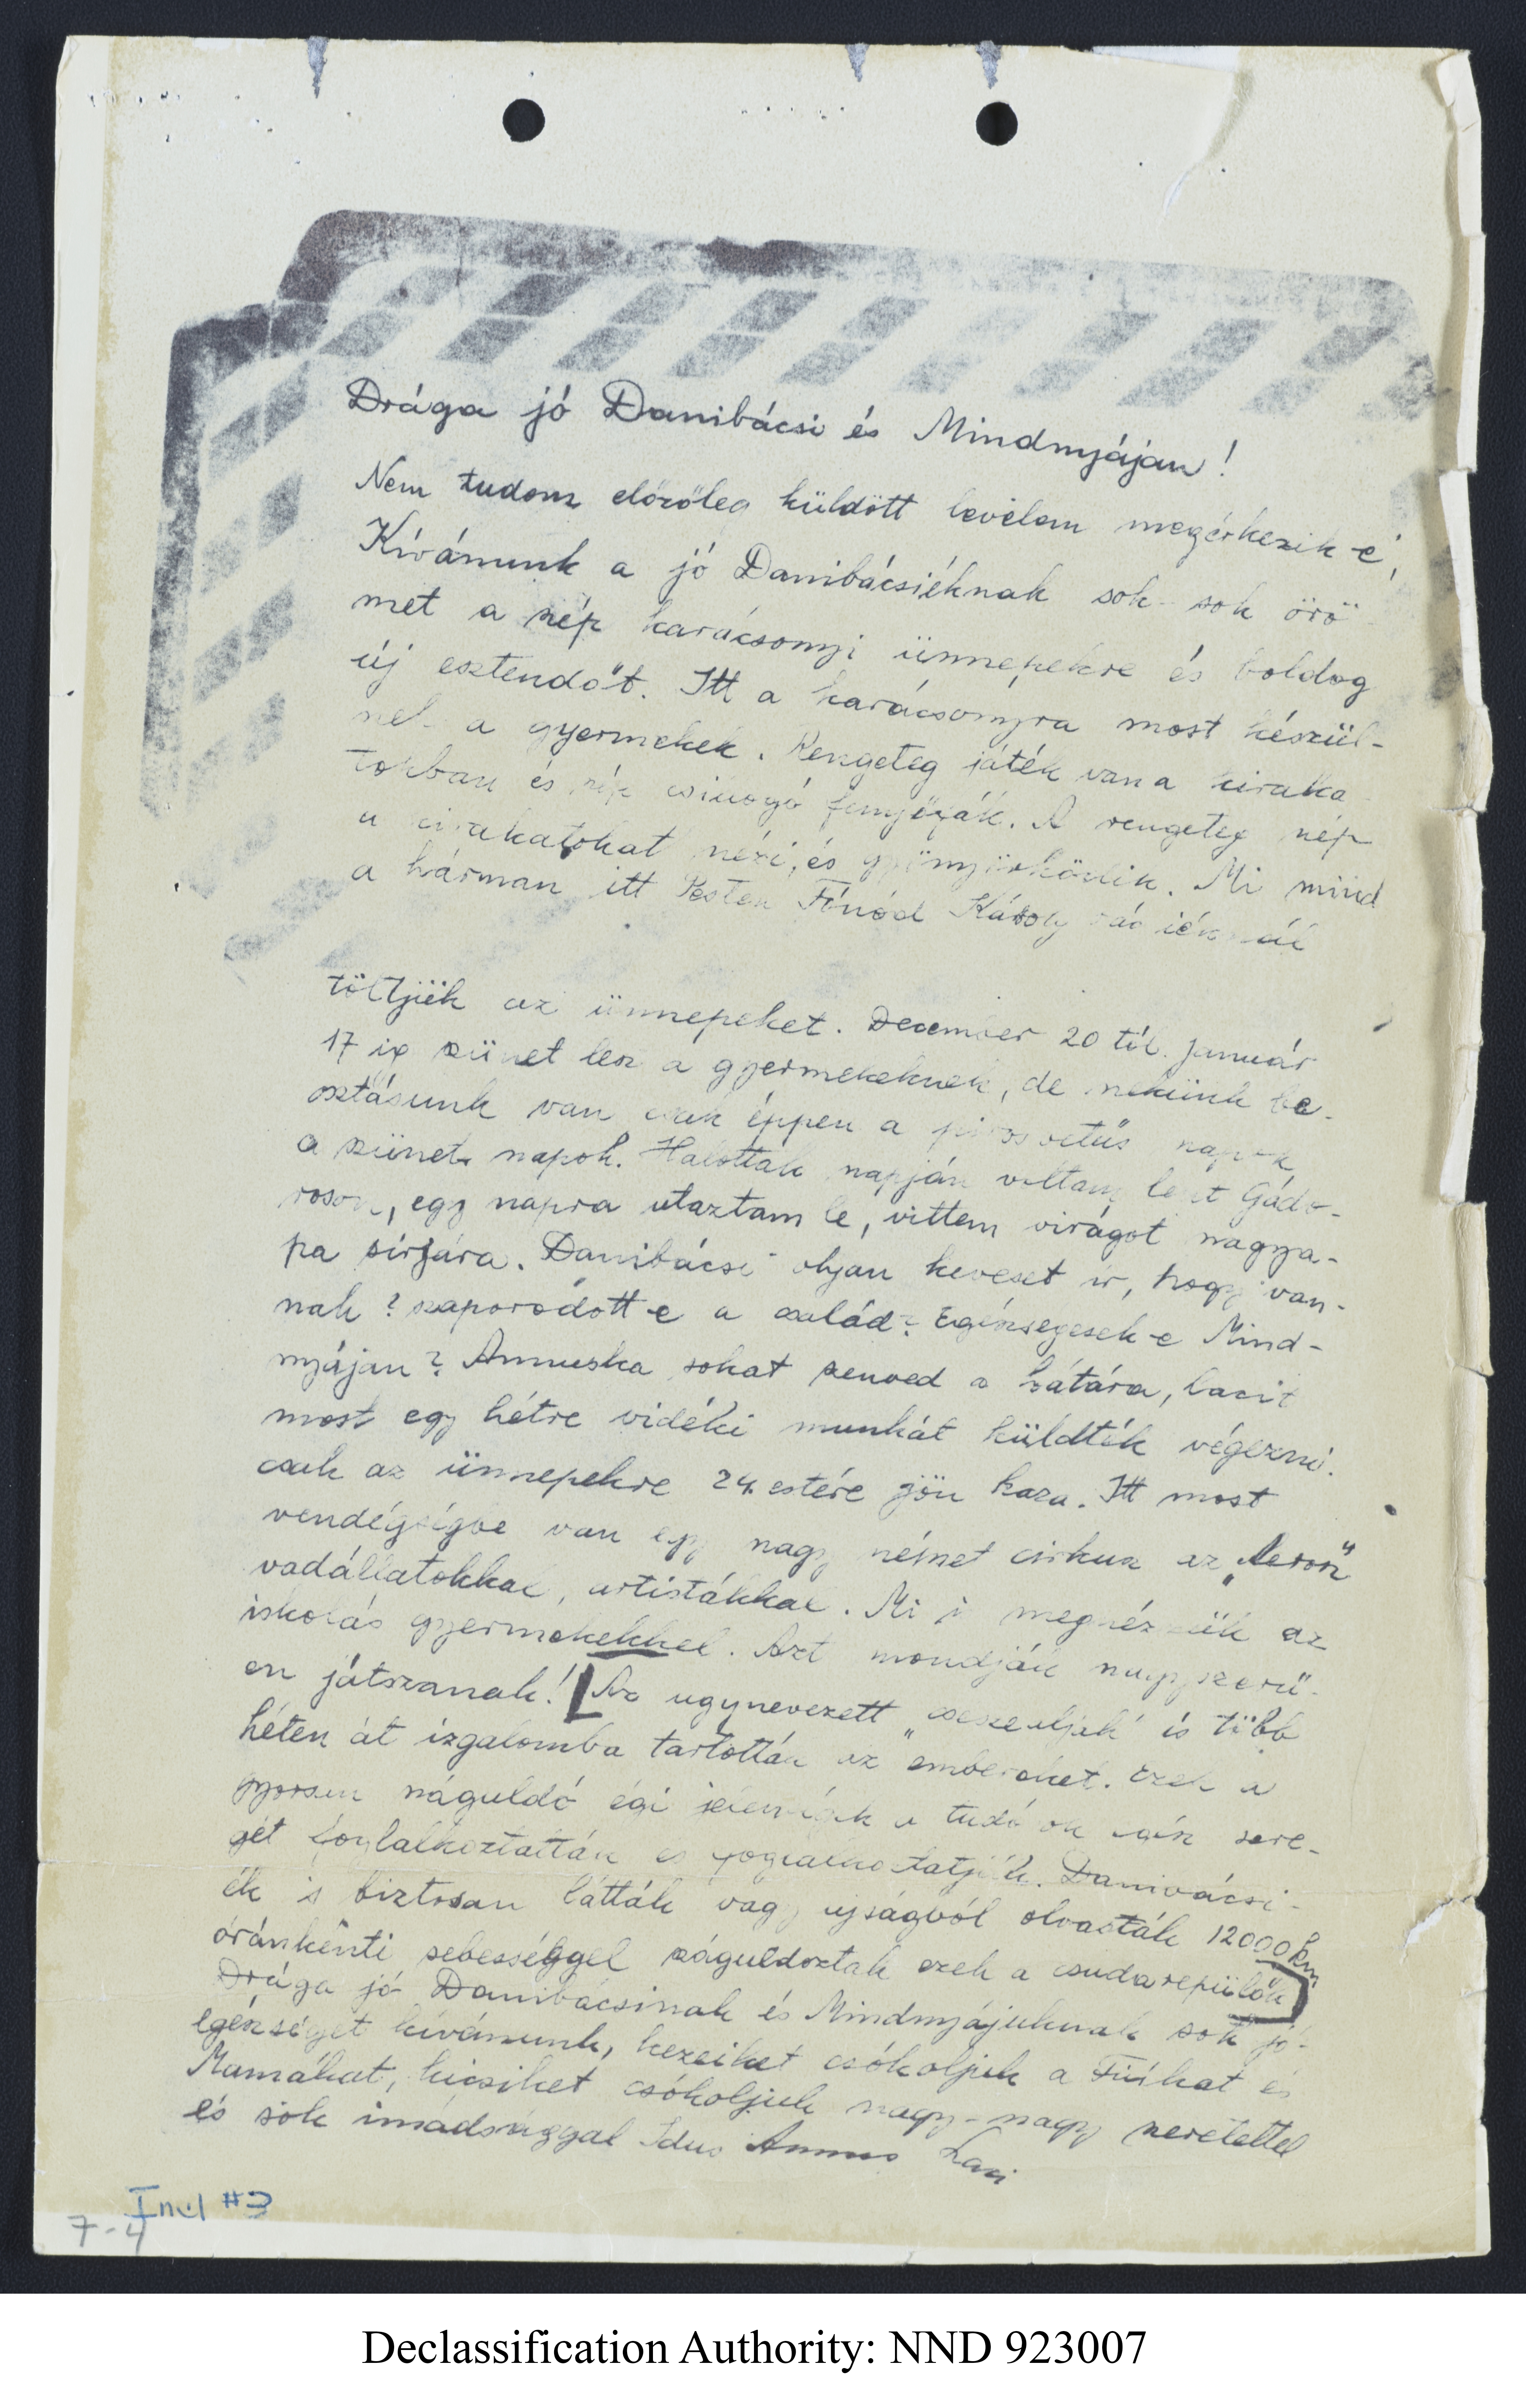 Drága jó Danibácsi és Mindnyájan!
Nem tudom előzőleg küldött levelem megérkezik-e,
Kívánunk a jó Danibácsiéknak sok-sok örö
met a szép karácsonyi ünnepekre és boldog
új esztendőt. Itt a karácsonyra most készül-
nek a gyermekek. Rengeteg játék van a kiraka
tokban és szép csillogó fenyőfák. A rengeteg nép
a kirakatokat nézi, és gyönyörködik. Mi mind
a hárman itt Pesten Fónód Károly
töltjük az ünnepeket. December 20 tól. Január
17 ig szünet lesz a gyermekeknek, de nekünk be-
osztásunk van csak éppen a pirosbetűs napok
a szünet napok. Halottak napján voltam lent Gádo-
roson, egy napra utaztam le, vittem virágot nagya-
pa sírjára. Danibácsi olyan keveset ír, hogy van-
nak? szaporodott-e a család? Egészségesek-e Mind-
nyájan? Annuska sokat szenved a hátára, Lacit
most egy hétre vidéki munkát küldték végezni.
csak az ünnepekre 24. estére jön haza. Itt most
vendégségbe van egy nagy német cirkusz az „Aeros"
vadállatokkal, artistákkal. Mi is megnézzük az
iskolás gyermekekkel. Azt mondják nagyszerű-
en játszanak! Az ugynevezett „csészealjak" is több
héten át izgalomba tartották az embereket. Ezek a
gyorsan száguldó égi jelenségek a tudósok egész sere-
gét foglalkoztatták és foglalkoztatják. Danibácsi-
ék is biztosan látták vagy ujságból olvasták 12000 km
óránkénti sebességgel száguldoztak ezek a csudarepülők
Drága jó Danibácsinak és Mindnyájuknak sok jó-
egészséget kívánunk, kezeiket csókoljuk a Fiúkat és
Mamákat, kicsiket csókoljuk nagy-nagy szeretettel
és sok imádsággal Idus Annus Laci
Incl #3
7-4
Declassification Authority: NND 923007